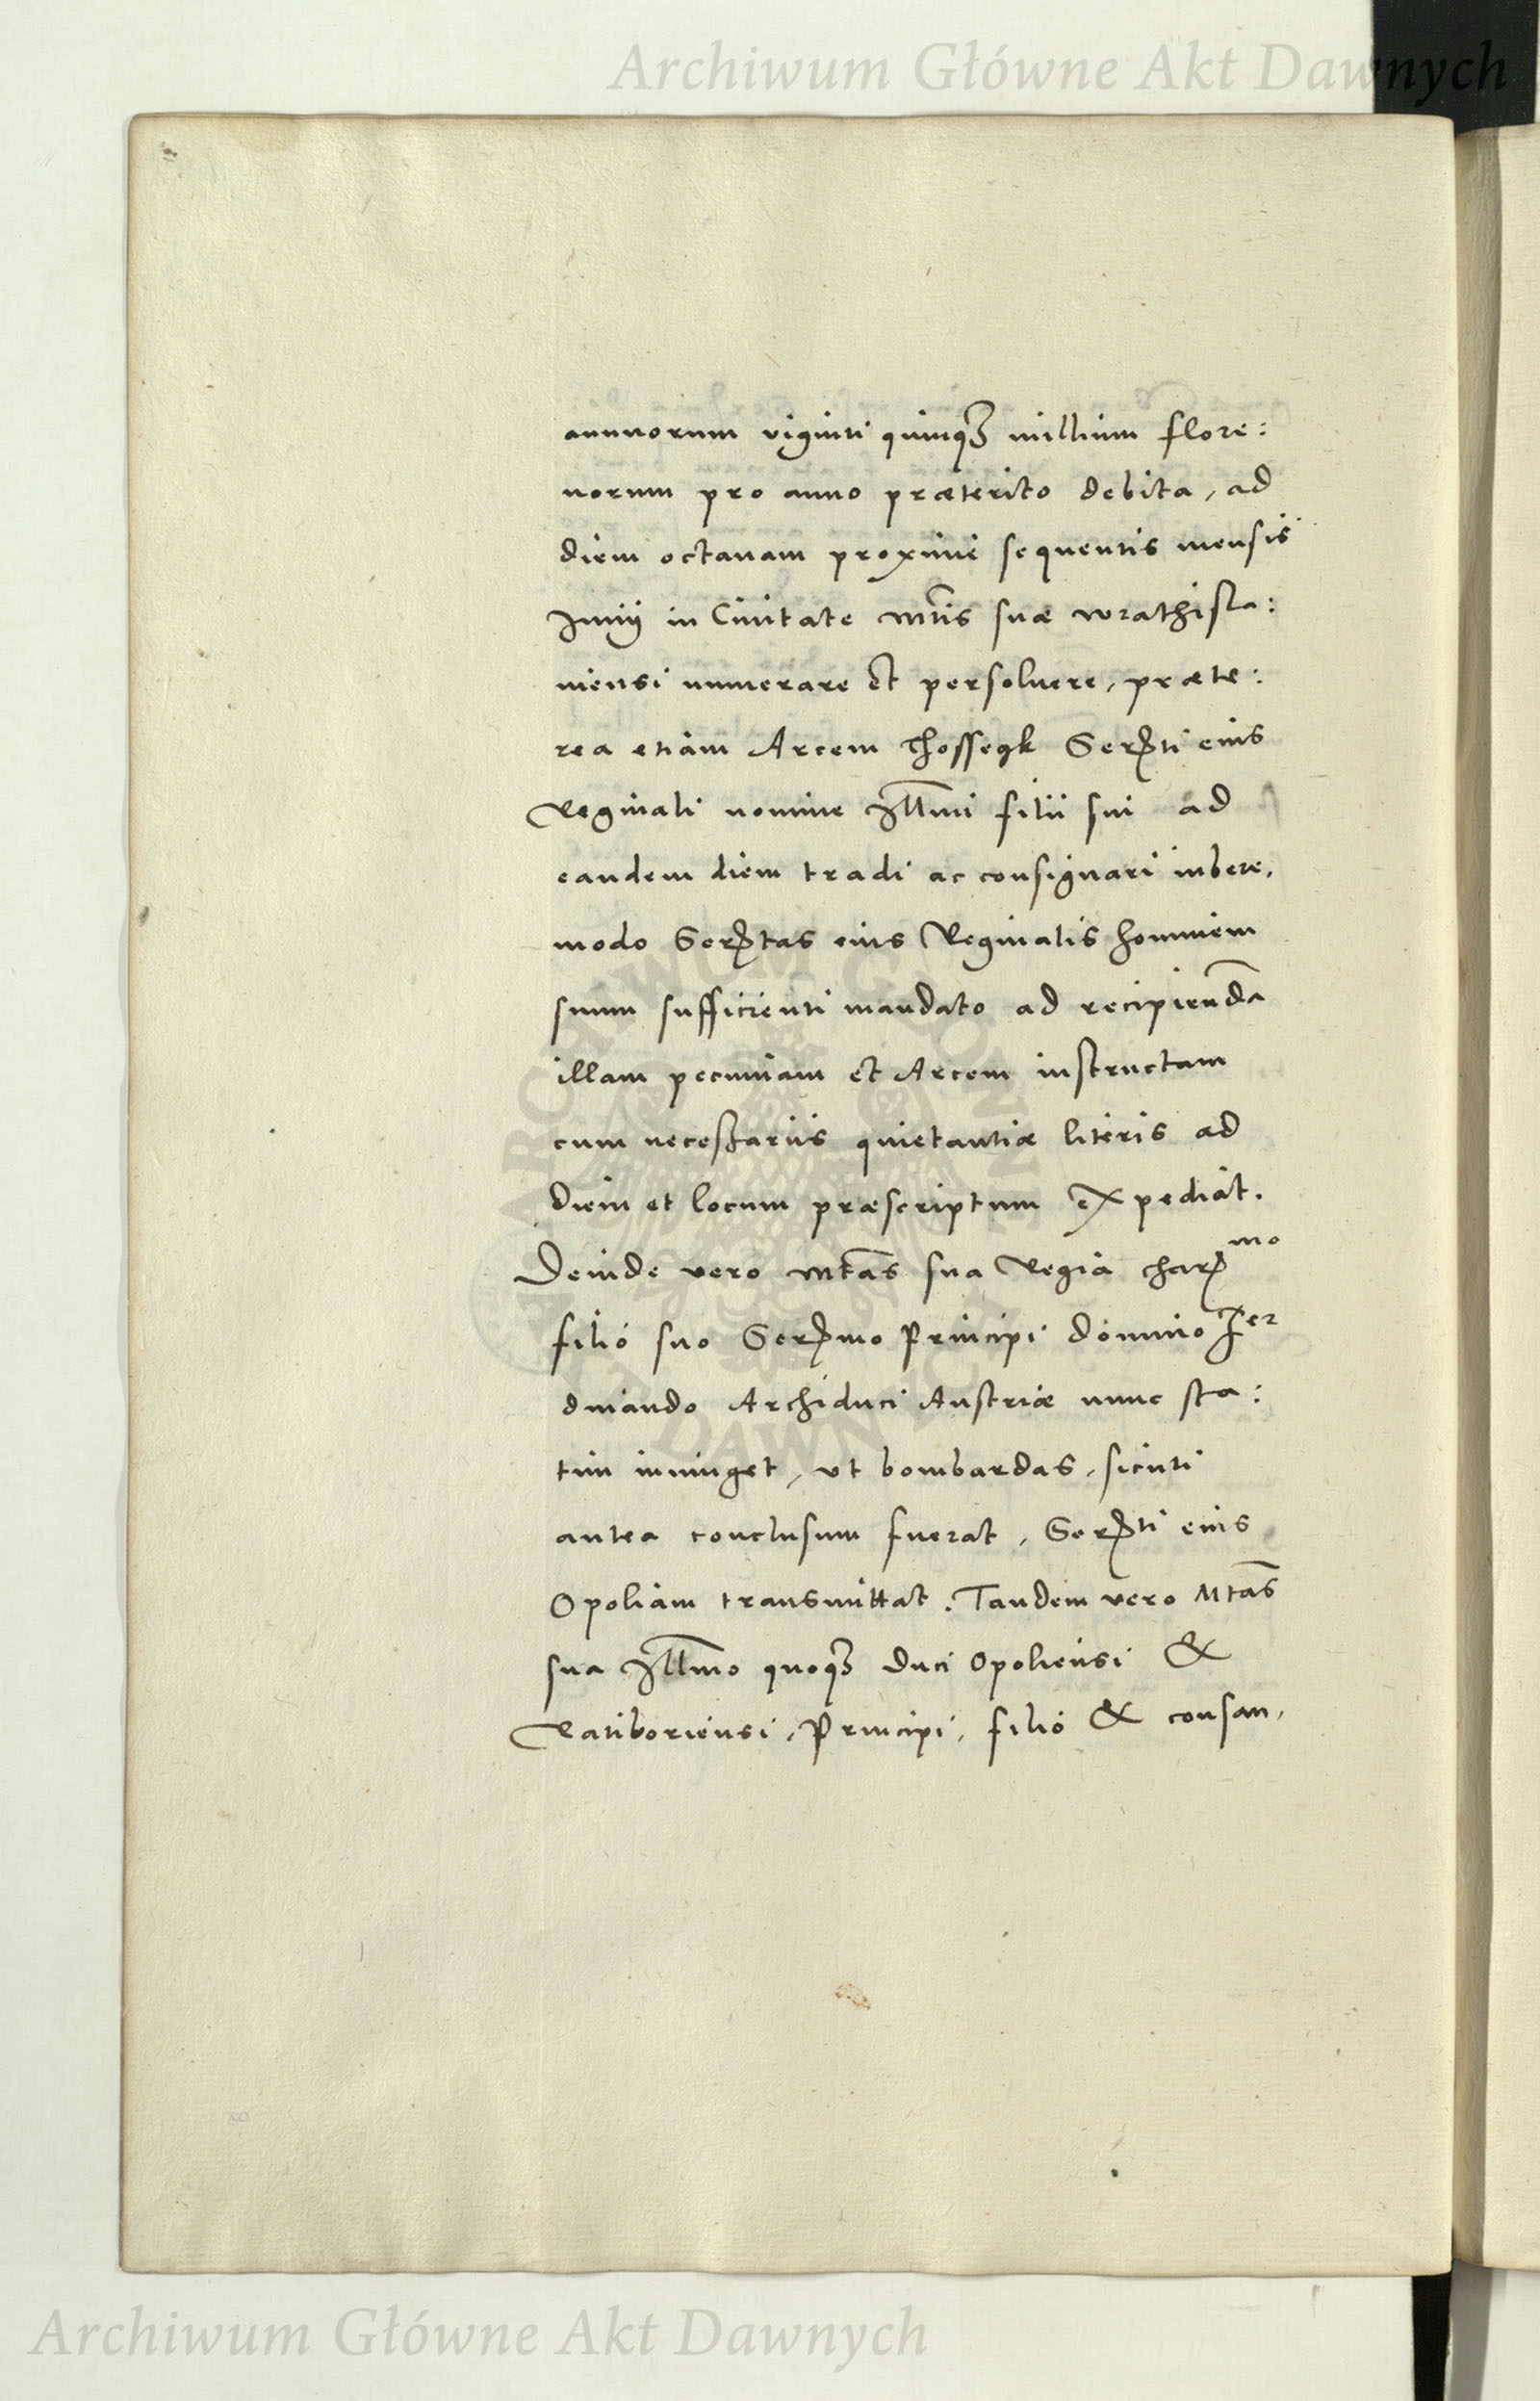 Archiwum Główne Akt Dawnych
annuorum viginti quinqꝫ millium flore:
norum pro anno præterito debita, ad
diem octauam proxime sequentis mensis
Junij in Ciuitate Mtis suæ Wrathisla:
uiensi numerare et persoluere, præte:
rea etiam Arcem Thossegk Serti eius
Reginali nomine Illmi filii sui ad
eandem diem tradi ac consignari iubere,
modo Sertas eius Reginalis hominem
suum sufficienti mandato ad recipienda
illam pecuniam et Arcem instructam
cum necessariis quietantiæ literis ad
diem et locum præscriptum expediat.
Deinde vero Mtas sua Regia charmo
filio suo Sermo Principi domino Fer
dinando Archiduci Austriæ nunc sta:
tim iniunget, ut bombardas, sicuti
antea conclusum fuerat, Serti eius
Opoliam transmittat. Tandem vero Mtas
sua Illmo quoqꝫ Duci Opoliensi &
Ratiboriensi, Principi, filio & consan,
Archiwum Główne Akt Dawnych